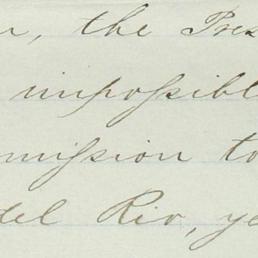 r, the Pres
impossibl
mission to
del Rio, ye